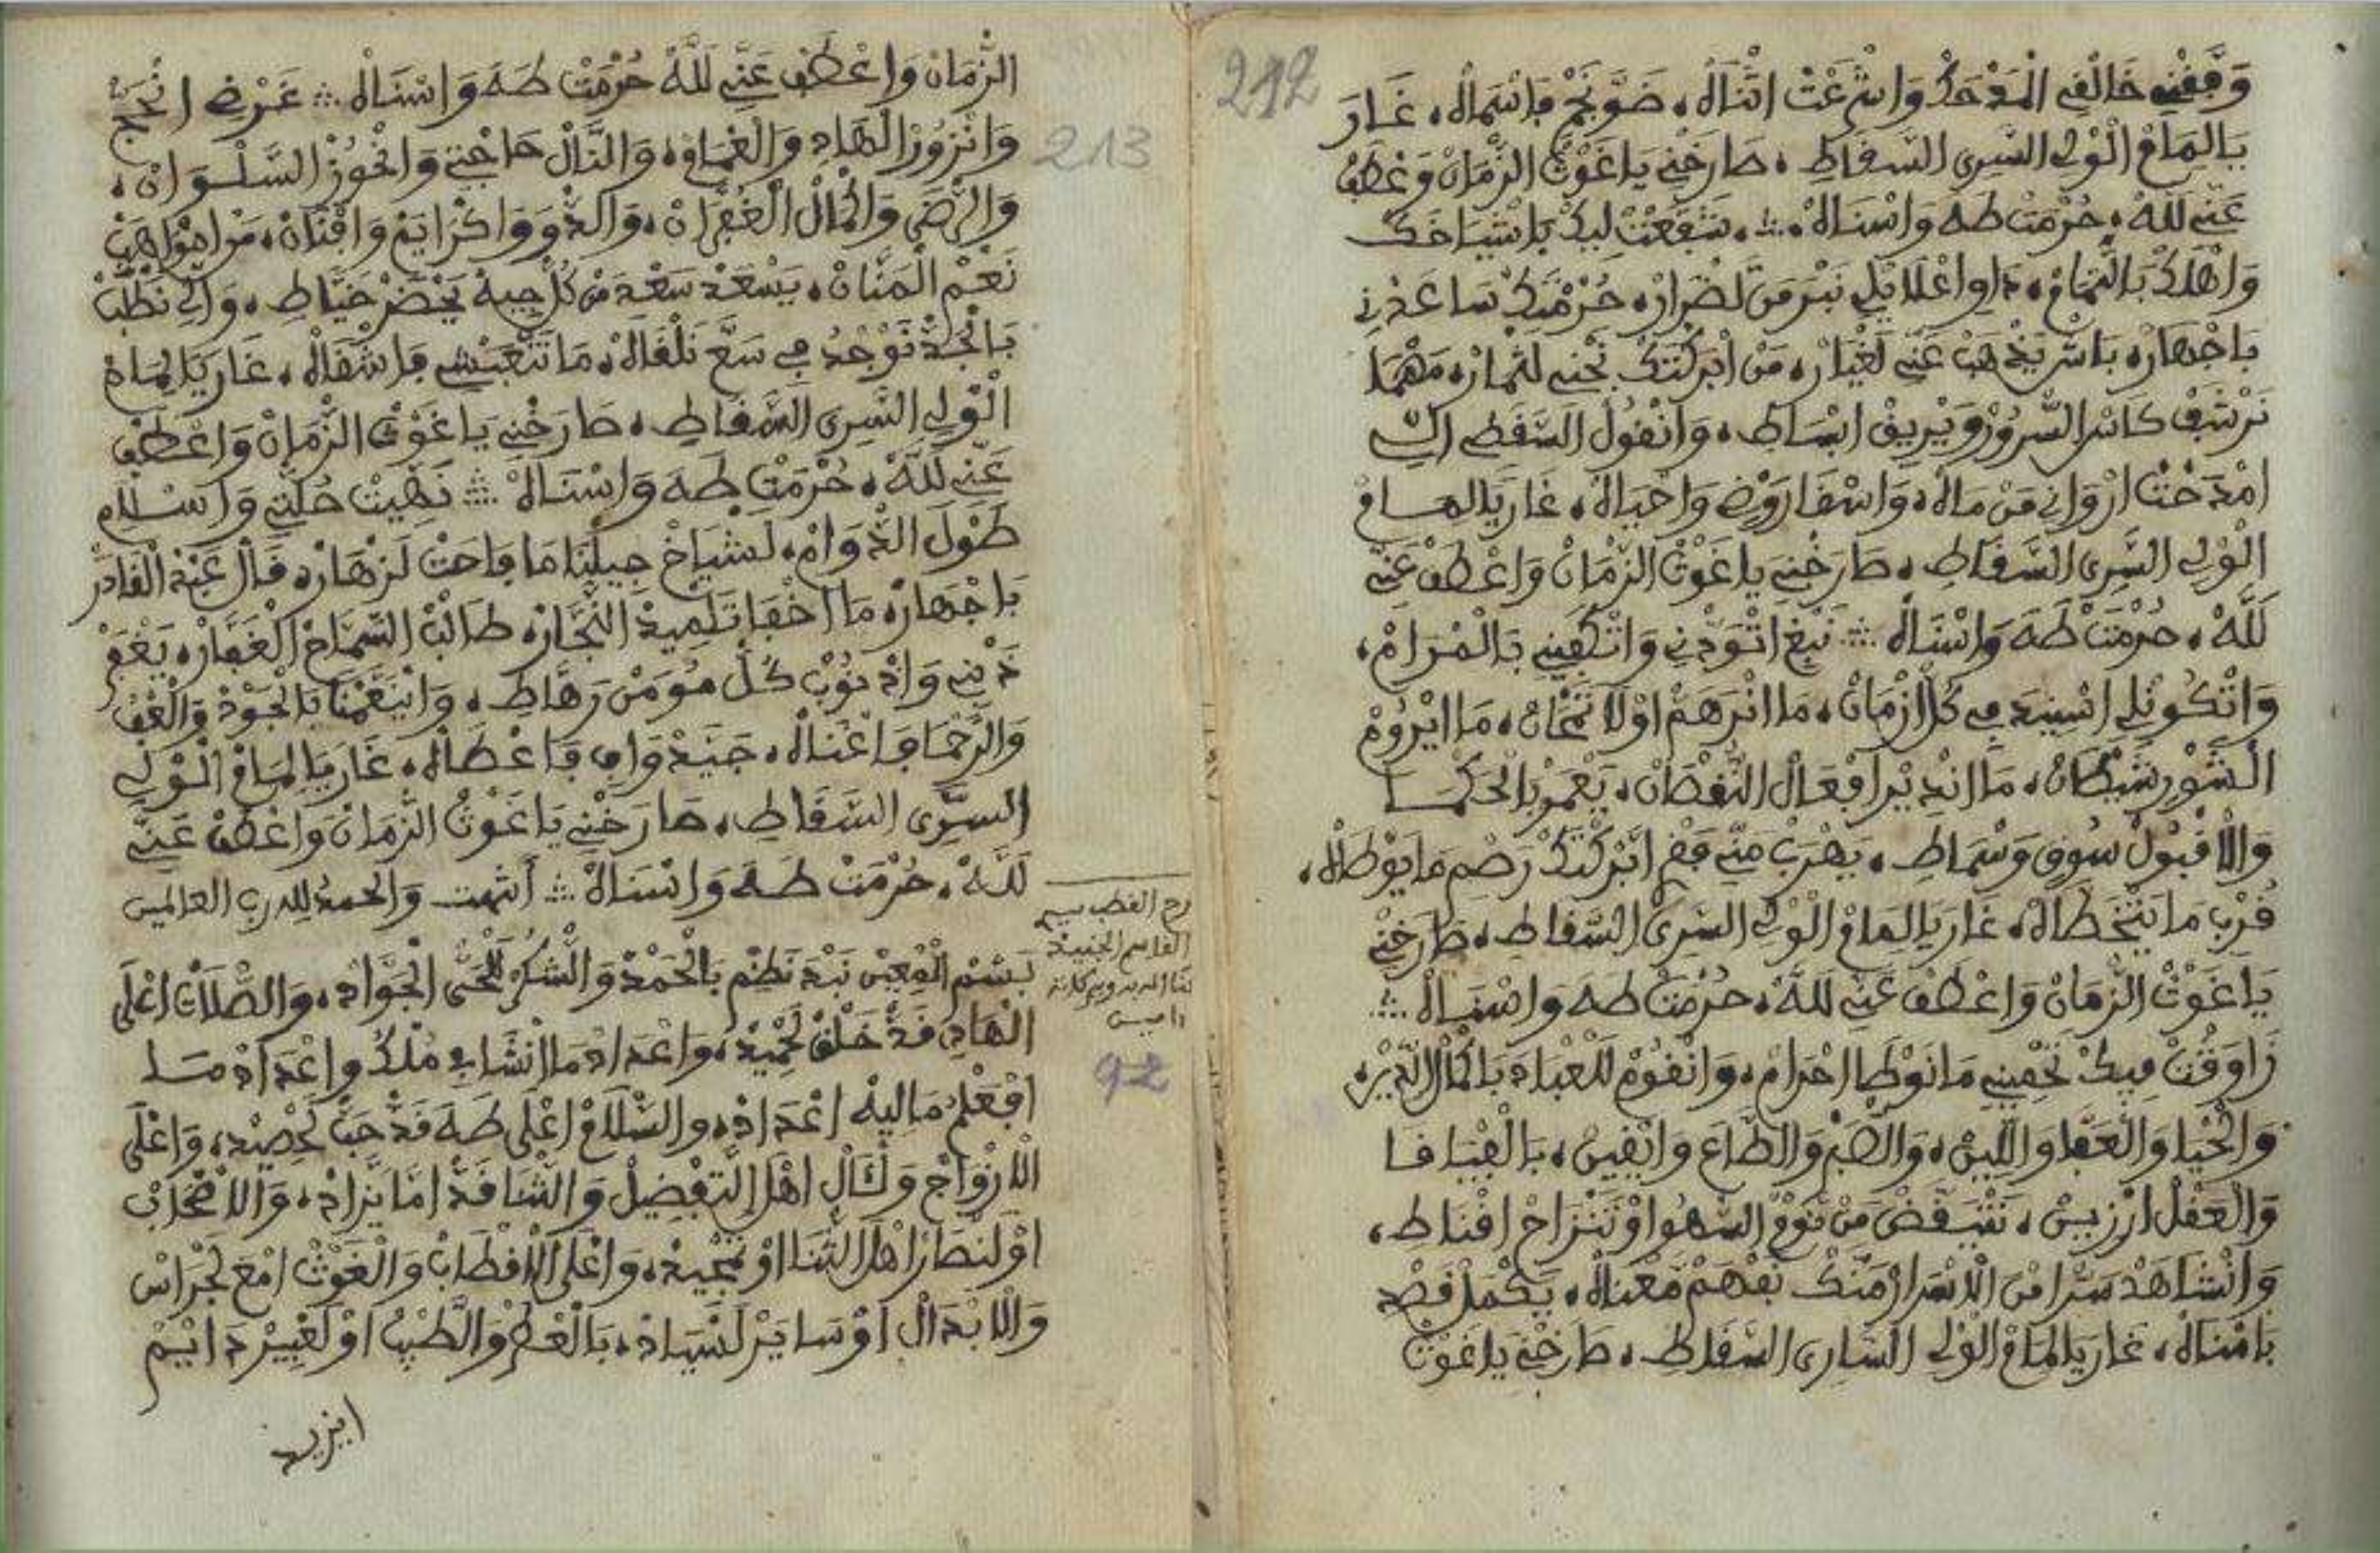 212
وَفَّقْنِي خَالْقِي الْمَدْحَكْ وَاشْرَعْتْ اثْنَاهْ، ضَوّ نَجْمْ فَاسْمَاهْ، غَارَ
يَالِمَامْ الْوْلِي السَّرِي السَّقَاطِ، صَارَخْنِي يَا غَوْثْ الزّْمَانْ وَعْطَفْ
عَنِّي لَلَّهْ، حُرْمَتْ طَهَ وَاسْنَاهْ ∴ شَفَّعْتْ لِيكْ بَاشْيَاخَكْ
وَاهْلَكْ بَالتّْمَامْ، دَاوِ اعْلَايْلِي نَبْرَ مَنْ لَضْرَارْ، حُرْمْتَكْ سَاعَدْنِي
بَاجْهَارْ، بَاشْ يَذْهَبْ عَنِّي لَغْيَارْ، مَنْ ابْرَكْتَكْ نَجْنِي لَثْمَارْ، مَهْمَا
نَرْشَفْ كَاسْ السُّرُورْ وَيْرِيقْ ابْسَاطِ، وَانْقُولْ السَّقَطِي
امْدَخْتْ ارْوَانِي مَنْ مَاهْ، وَاسْقَا رَوْضِي وَاحْيَاهْ، غَارَ يَالِمَامْ
الْوْلِي السَّرِي السَّقَاطِ، صَارَخْنِي يَا غَوْثْ الزّْمَانْ وَاعْطَفْ عَنِّي
لَلَّهْ، حُرْمَتْ طَهَ وَاسْنَاهْ ∴ نَبْغِ اتْوَدْنِي وَاتْكَفِينِي بَالْمْرَامْ،
وَاتْكُونْلِي اسْنِيدَ فِي كُلّْ ازْمَانْ، مَا انْرَهَمْ اوْلَا نَمْحَانْ، مَا ايْرُومْ
الشَّوْرِ شَيْطَانْ، مَا انْدِيرْ افْعَالْ النُّقْصَانْ، يَعْمَرْ بَالْحَكْمَا
وَالْاقْبُولْ سُوقِي وَسْمَاطِ، يَهْرَبْ مَنِّي فَقْرِ ابَّرْكْتَكْ رَصْمِ مَا يَوْطَاهْ،
قُرْبِ مَا يَتْخَطَّاهْ، غَارَ يَالِمَامْ الْوْلِي السَّرِي السَّقَاطِ، صَارَخْنِي
يَا غَوْثْ الزّْمَانْ وَاعْطَفْ عَنِّي لَلَّهْ، حُرْمَتْ طَهَ وَاسْنَاهْ ∴
رَاوَقْتْ فِيكْ تَحْمِينِي مَا نَوْطَا احْرَامْ، وَانْقُومْ لَلْعْبَادَ بَاكْمَالْ الدِّينْ،
وَالْحْيَا وَالْعَفَّا وَاللِّينْ، وَالصّْبَرْ وَالطَّاعَ وَالْيْقِينْ، بَالْقْيَافَا
وَالْعَقْلْ ارْزِينْ، نَتْيَقَّضْ مَنْ نَوْمْ السّْهُو اوْ تَنْزَاحْ اقْنَاطِ،
وَانْشَاهَدْ سَرّْ مَنْ الْاسْرَارْ مَنَّكْ نَفْهَمْ مَعْنَاهْ، يَكْمَلْ قَصْدِ
بَامْنَاهْ، غَارَ يَالِمَامْ الْوْلِي السَّارِي السَّقَاطِ، صَارَخْنِي يَا غَوْثْ
213
الزّْمَانْ وَاعْطَفْ عَنِّي لَلَّهْ حُرْمَتْ طَهَ وَاسْنَاهْ ∴ غَرْضِي انْحَجّْ
وَانْزُورْ الْهَادِ وَالْغْمَامْ، وَالنَّالْ حَاجْتِي وَانْحُوزْ السَّلْوَانْ،
وَالرّْضَى وَاكْمَالْ الْغُفْرَانْ، وَالدُّو وَاكْرَايَمْ وَاقْنَانْ، مَنْ امْوَاهَبْ
نَعْمْ الْمَنَّانْ، يَسْعَدْ سَعْدِ مَنْ كُلّْ جِيهْ يَحْضَرْ خَيَّاطِ، وَالِّي نَطْلَبْ
بَالْجَدّْ نَوْجْدُ فِي سَعَّ نَلْقَاهْ، مَا نَتْعَبْشِي فَاشْقَاهْ، غَارَ يَالِمَامْ
الْوْلِي السَّرِي السَّقَاطِ، صَارَخْنِي يَا غَوْثْ الزّْمَانْ وَاعْطَفْ
عَنِّي لَلَّهْ، حُرْمَتْ طَهَ وَاسْنَاهْ ∴ نَهِيتْ حُلّْتِي وَاسْلَامِ
طَولْ الدّْوَامْ، لَشْيَاخْ جِيلْنَا مَا فَاحَتْ لَزْهَارْ، قَالْ عَبْدْ الْقَادَرْ
بَاجْهَارْ، مَا اخْفَا تَلْمِيدْ النَّجَّارْ، طَالْبْ السّْمَاحْ الْغَفَّارْ، يَغْفَرْ
ذَنْبِي وَاذْنُوبْ كُلّْ مُومَنْ رَهَّاطِ، وَانِيغَمْنَا بَالْجُودْ وَالْعْفُ
وَالرَّحْمَا فَاغْنَاهْ، جَيَّدْ وَافِي فَاعْطَاهْ، غَارَ يَالِمَامْ الْوْلِي
السَّرِي السَّقَاطِ، صَارَخْنِي يَا غَوْثْ الزّْمَانْ وَاعْطَفْ عَنِّي
لَلَّهْ، حُرْمَتْ طَهَ وَاسْنَاهْ ∴ أنتهت وَالحمدُ لله رب العالمين
القاسم الجنيد
92
بَسْمْ الْمُعِينْ نَبْدَ نَظْمِ بَالْحَمْدْ وَالشُّكْرْ لَلْحَيّْ الْجَوَّادْ، وَالصّْلَاتْ اعْلَى
الْهَادِ قَدّْ خَلْقْ لَحْمِيدْ، وَاعْدَادْ مَا انْشَا فِي مُلْكُ وَاعْدَادْ مَا
افْعَلْمُ مَالِيهْ اعْدَادْ، والسّْلَامْ اعْلَى طَهَ قَدّْ حَبّْ لَحْصِيدْ، وَاعْلَى
الْازْوَاجْ وَلَآلْ اهْلْ التَّفْضِيلْ وَالثّْنَا قَدّْ امَّا يَزَّادْ، وَالْاصْحَابْ
اوْ لَنْصَارْ اهْلْ الثّْنَا اوْ تَمْجِيدْ، وَاعْلَى الْاقْطَابْ وَالْغَوْثْ امْعَ لَجْرَاسْ
وَالْابْدَالْ اوْ سَايَرْ لَسْيَادْ، بَالْعْطَرْ وَالطِّيبْ اوْ لَعْبِيرْ دَايْمْ
ايزيد